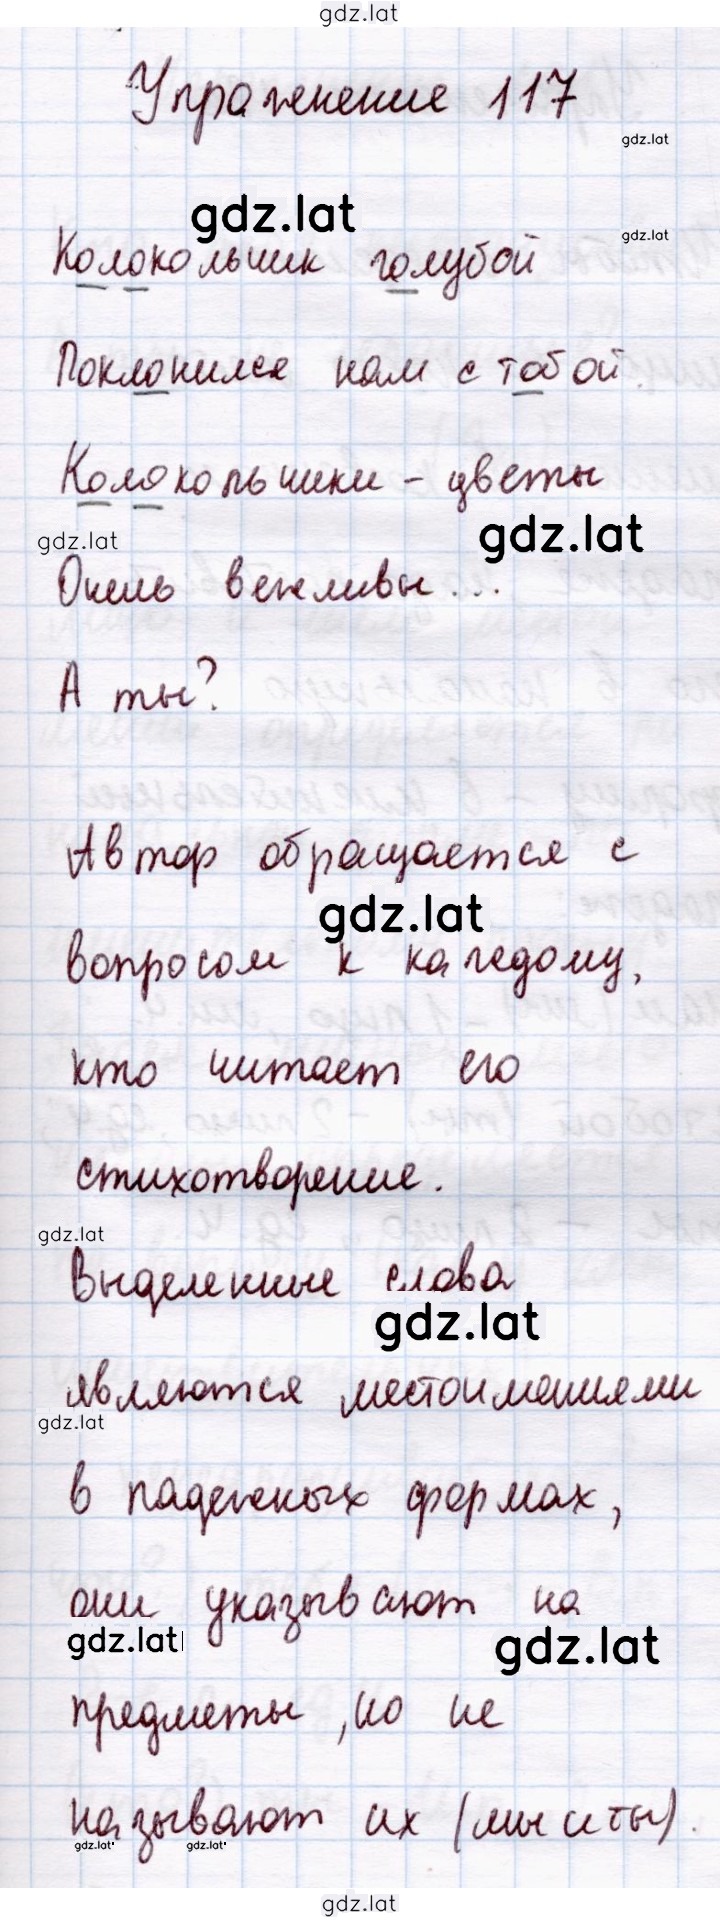 gdz.lat
Упражнение 117
gdz.lat
gdz.lat
gdz.lat
Колокольчик голубой
Поклонился нам с тобой.
Колокольчики - цветы
gdz.lat
gdz.lat
Очень вежливы...
А ты?
Автор обращается с
gdz.lat
вопросом к каждому,
кто читает его
стихотворение.
gdz.lat
Выделенные слова
gdz.lat
являются местоимениями
gdz.lat
в падежных формах,
они указывают на
gdz.lat
gdz.lat
предметы, но не
называют их (мы и ты).
gdz.lat
gdz.lat
gdz.lat